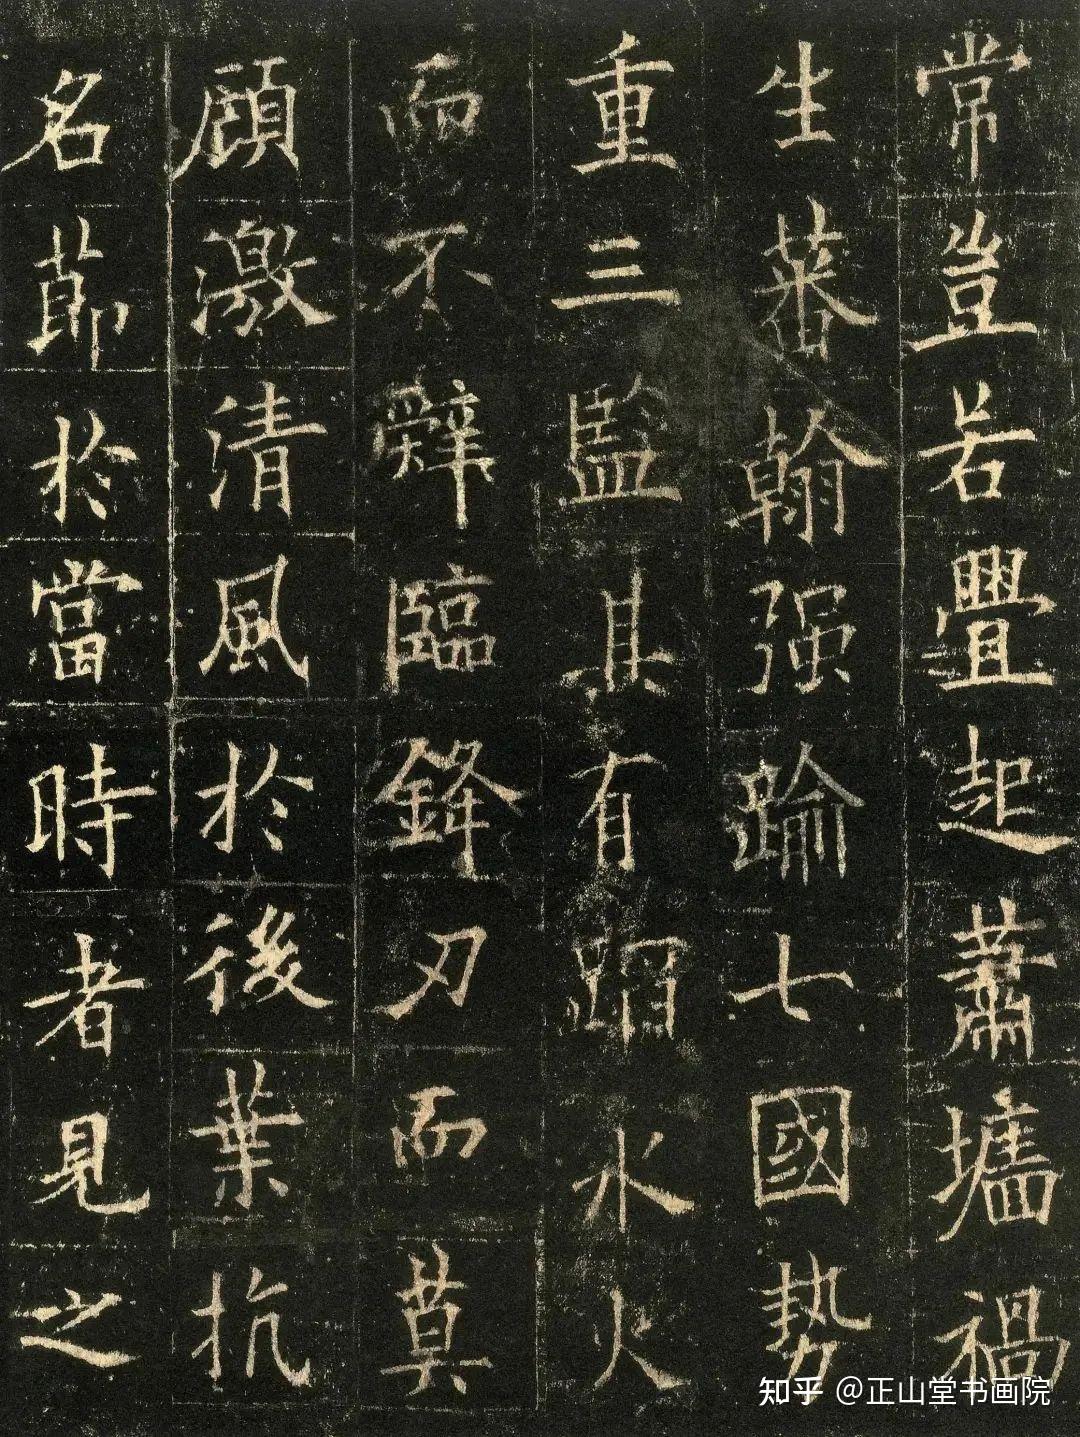 常豈若舋起蕭墻禍
生蕃翰强踰七國势
重三監其有蹈水火
而不辭臨鋒刃而莫
顧激清風於後葉抗
名莭於當時者見之
知乎 @正山堂书画院